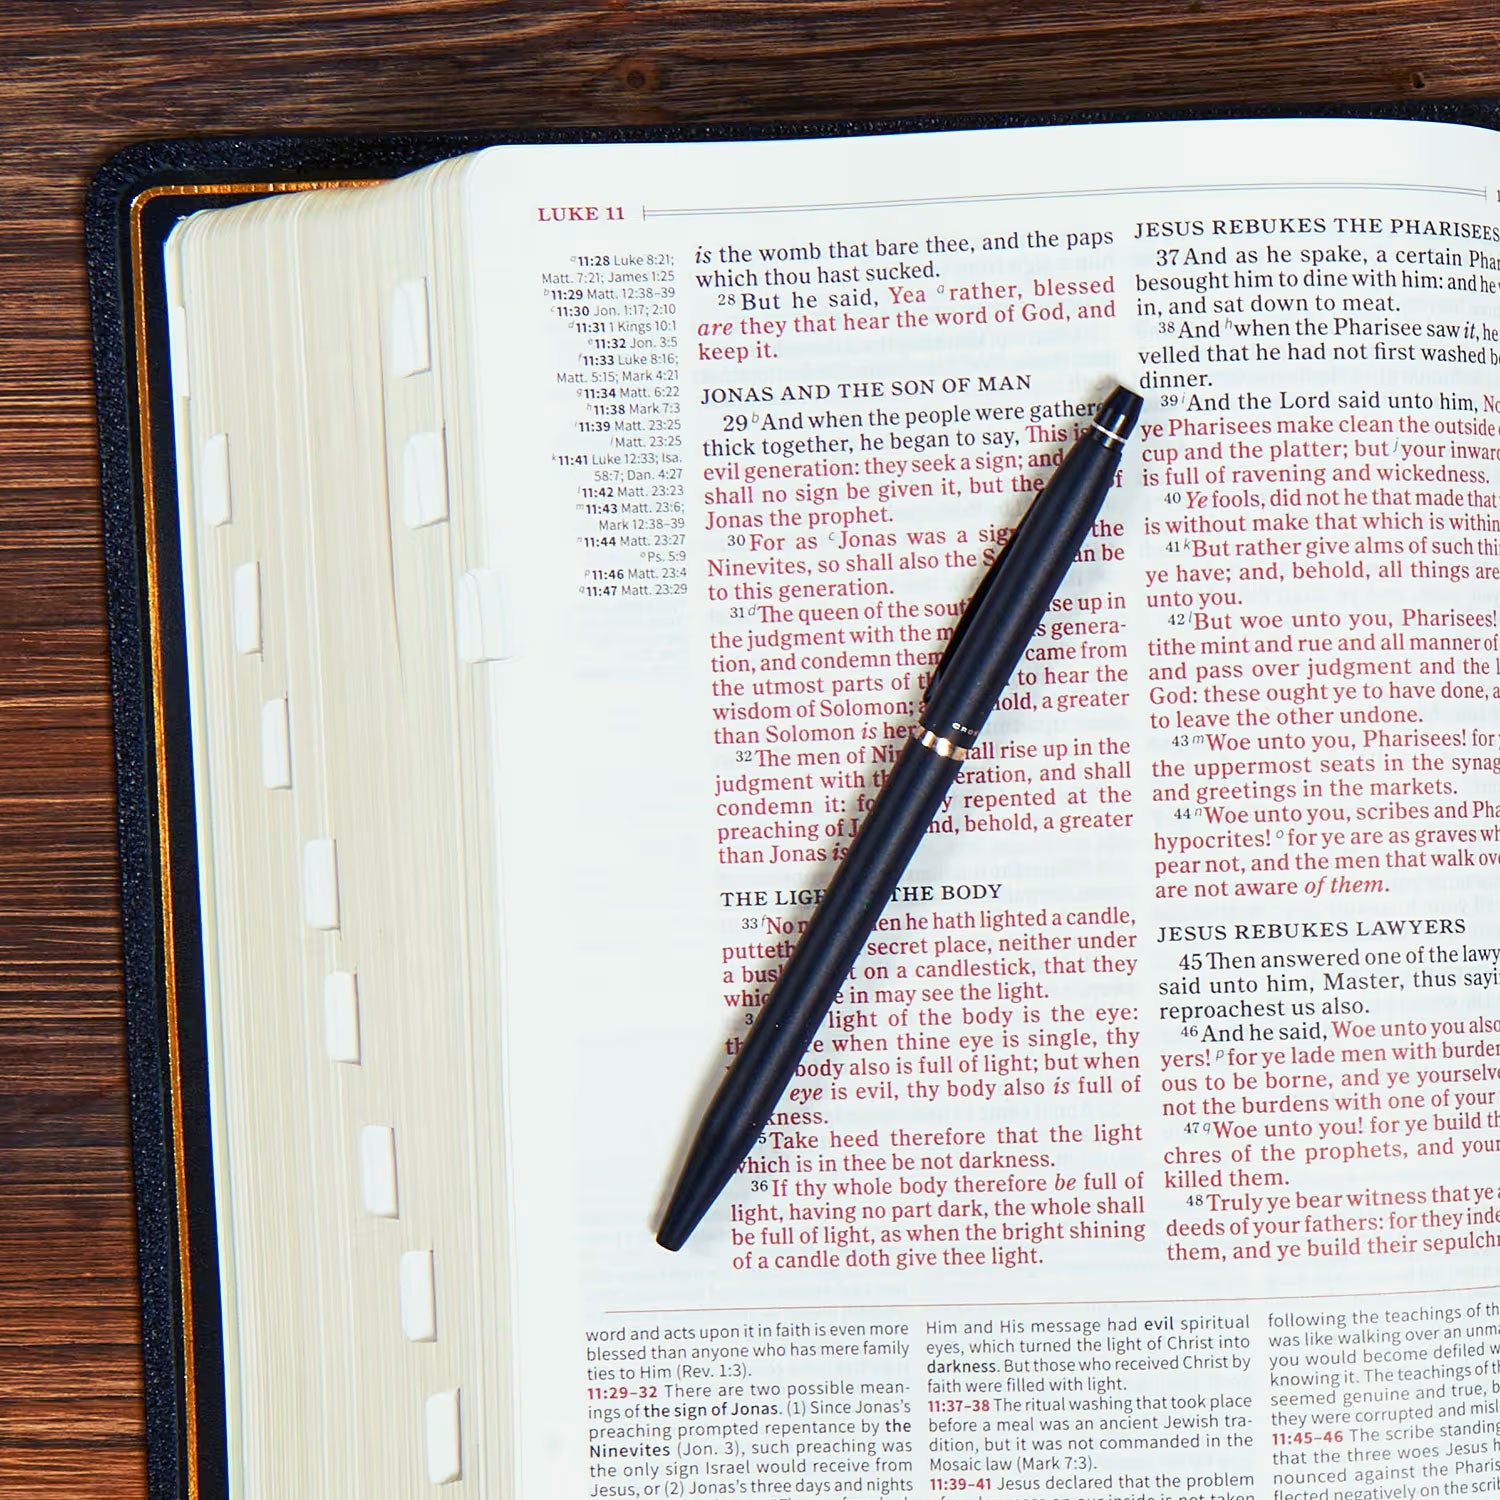 LUKE 11
ᵃ11:28 Luke 8:21;
Matt. 7:21; James 1:25
ᵇ11:29 Matt. 12:38–39
ᶜ11:30 Jon. 1:17; 2:10
ᵈ11:31 1 Kings 10:1
ᵉ11:32 Jon. 3:5
ᶠ11:33 Luke 8:16;
Matt. 5:15; Mark 4:21
ᵍ11:34 Matt. 6:22
ʰ11:38 Mark 7:3
ⁱ11:39 Matt. 23:25
ʲMatt. 23:25
ᵏ11:41 Luke 12:33; Isa.
58:7; Dan. 4:27
ˡ11:42 Matt. 23:23
ᵐ11:43 Matt. 23:6;
Mark 12:38–39
ⁿ11:44 Matt. 23:27
ᵒPs. 5:9
ᵖ11:46 Matt. 23:4
q11:47 Matt. 23:29
is the womb that bare thee, and the paps
which thou hast sucked.
28 But he said, Yea ᵃrather, blessed
are they that hear the word of God, and
keep it.
JONAS AND THE SON OF MAN
29 ᵇAnd when the people were gather
thick together, he began to say, This is
evil generation: they seek a sign; and
shall no sign be given it, but the of
Jonas the prophet.
30 For as ᶜJonas was a sig the
Ninevites, so shall also the S an be
to this generation.
31 ᵈThe queen of the sout se up in
the judgment with the m s genera-
tion, and condemn them came from
the utmost parts of t to hear the
wisdom of Solomon; a old, a greater
than Solomon is her
32 The men of Nin all rise up in the
judgment with th eration, and shall
condemn it: fo y repented at the
preaching of J nd, behold, a greater
than Jonas is
THE LIGH THE BODY
33 ᶠNo m en he hath lighted a candle,
putteth secret place, neither under
a bus t on a candlestick, that they
whic e in may see the light.
3 light of the body is the eye:
th e when thine eye is single, thy
body also is full of light; but when
eye is evil, thy body also is full of
kness.
5 Take heed therefore that the light
which is in thee be not darkness.
36 If thy whole body therefore be full of
light, having no part dark, the whole shall
be full of light, as when the bright shining
of a candle doth give thee light.
CROS
JESUS REBUKES THE PHARISEES
37 And as he spake, a certain Phar
besought him to dine with him: and he
in, and sat down to meat.
38 And ʰwhen the Pharisee saw it, he
velled that he had not first washed b
dinner.
39 ⁱAnd the Lord said unto him, No
ye Pharisees make clean the outside
cup and the platter; but ʲyour inwar
is full of ravening and wickedness.
40 Ye fools, did not he that made that
is without make that which is within
41 ᵏBut rather give alms of such thi
ye have; and, behold, all things are
unto you.
42 ˡBut woe unto you, Pharisees!
tithe mint and rue and all manner of
and pass over judgment and the l
God: these ought ye to have done, a
to leave the other undone.
43 ᵐWoe unto you, Pharisees! for
the uppermost seats in the synag
and greetings in the markets.
44 ⁿWoe unto you, scribes and Pha
hypocrites! ᵒfor ye are as graves wh
pear not, and the men that walk ov
are not aware of them.
JESUS REBUKES LAWYERS
45 Then answered one of the lawy
said unto him, Master, thus sayi
reproachest us also.
46 And he said, Woe unto you also
yers! ᵖfor ye lade men with burden
ous to be borne, and ye yourselve
not the burdens with one of your
47 qWoe unto you! for ye build th
chres of the prophets, and your
killed them.
48 Truly ye bear witness that ye a
deeds of your fathers: for they inde
them, and ye build their sepulchr
word and acts upon it in faith is even more
blessed than anyone who has mere family
ties to Him (Rev. 1:3).
11:29–32 There are two possible mean-
ings of the sign of Jonas. (1) Since Jonas's
preaching prompted repentance by the
Ninevites (Jon. 3), such preaching was
the only sign Israel would receive from
Jesus, or (2) Jonas's three days and nights
Him and His message had evil spiritual
eyes, which turned the light of Christ into
darkness. But those who received Christ by
faith were filled with light.
11:37–38 The ritual washing that took place
before a meal was an ancient Jewish tra-
dition, but it was not commanded in the
Mosaic law (Mark 7:3).
11:39–41 Jesus declared that the problem
following the teachings of th
was like walking over an unma
you would become defiled w
knowing it. The teachings of th
seemed genuine and true, b
they were corrupted and misl
11:45–46 The scribe standing
that the three woes Jesus h
nounced against the Pharis
flected negatively on the scri